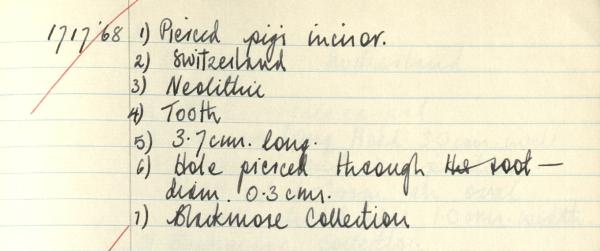 1717'68 1) Pierced pig's incisor.
2) Switzerland
3) Neolithic
4) Tooth
5) 3.7cms. long.
6) Hole pierced through the root —
diam. 0.3cms.
7) Blackmore Collection